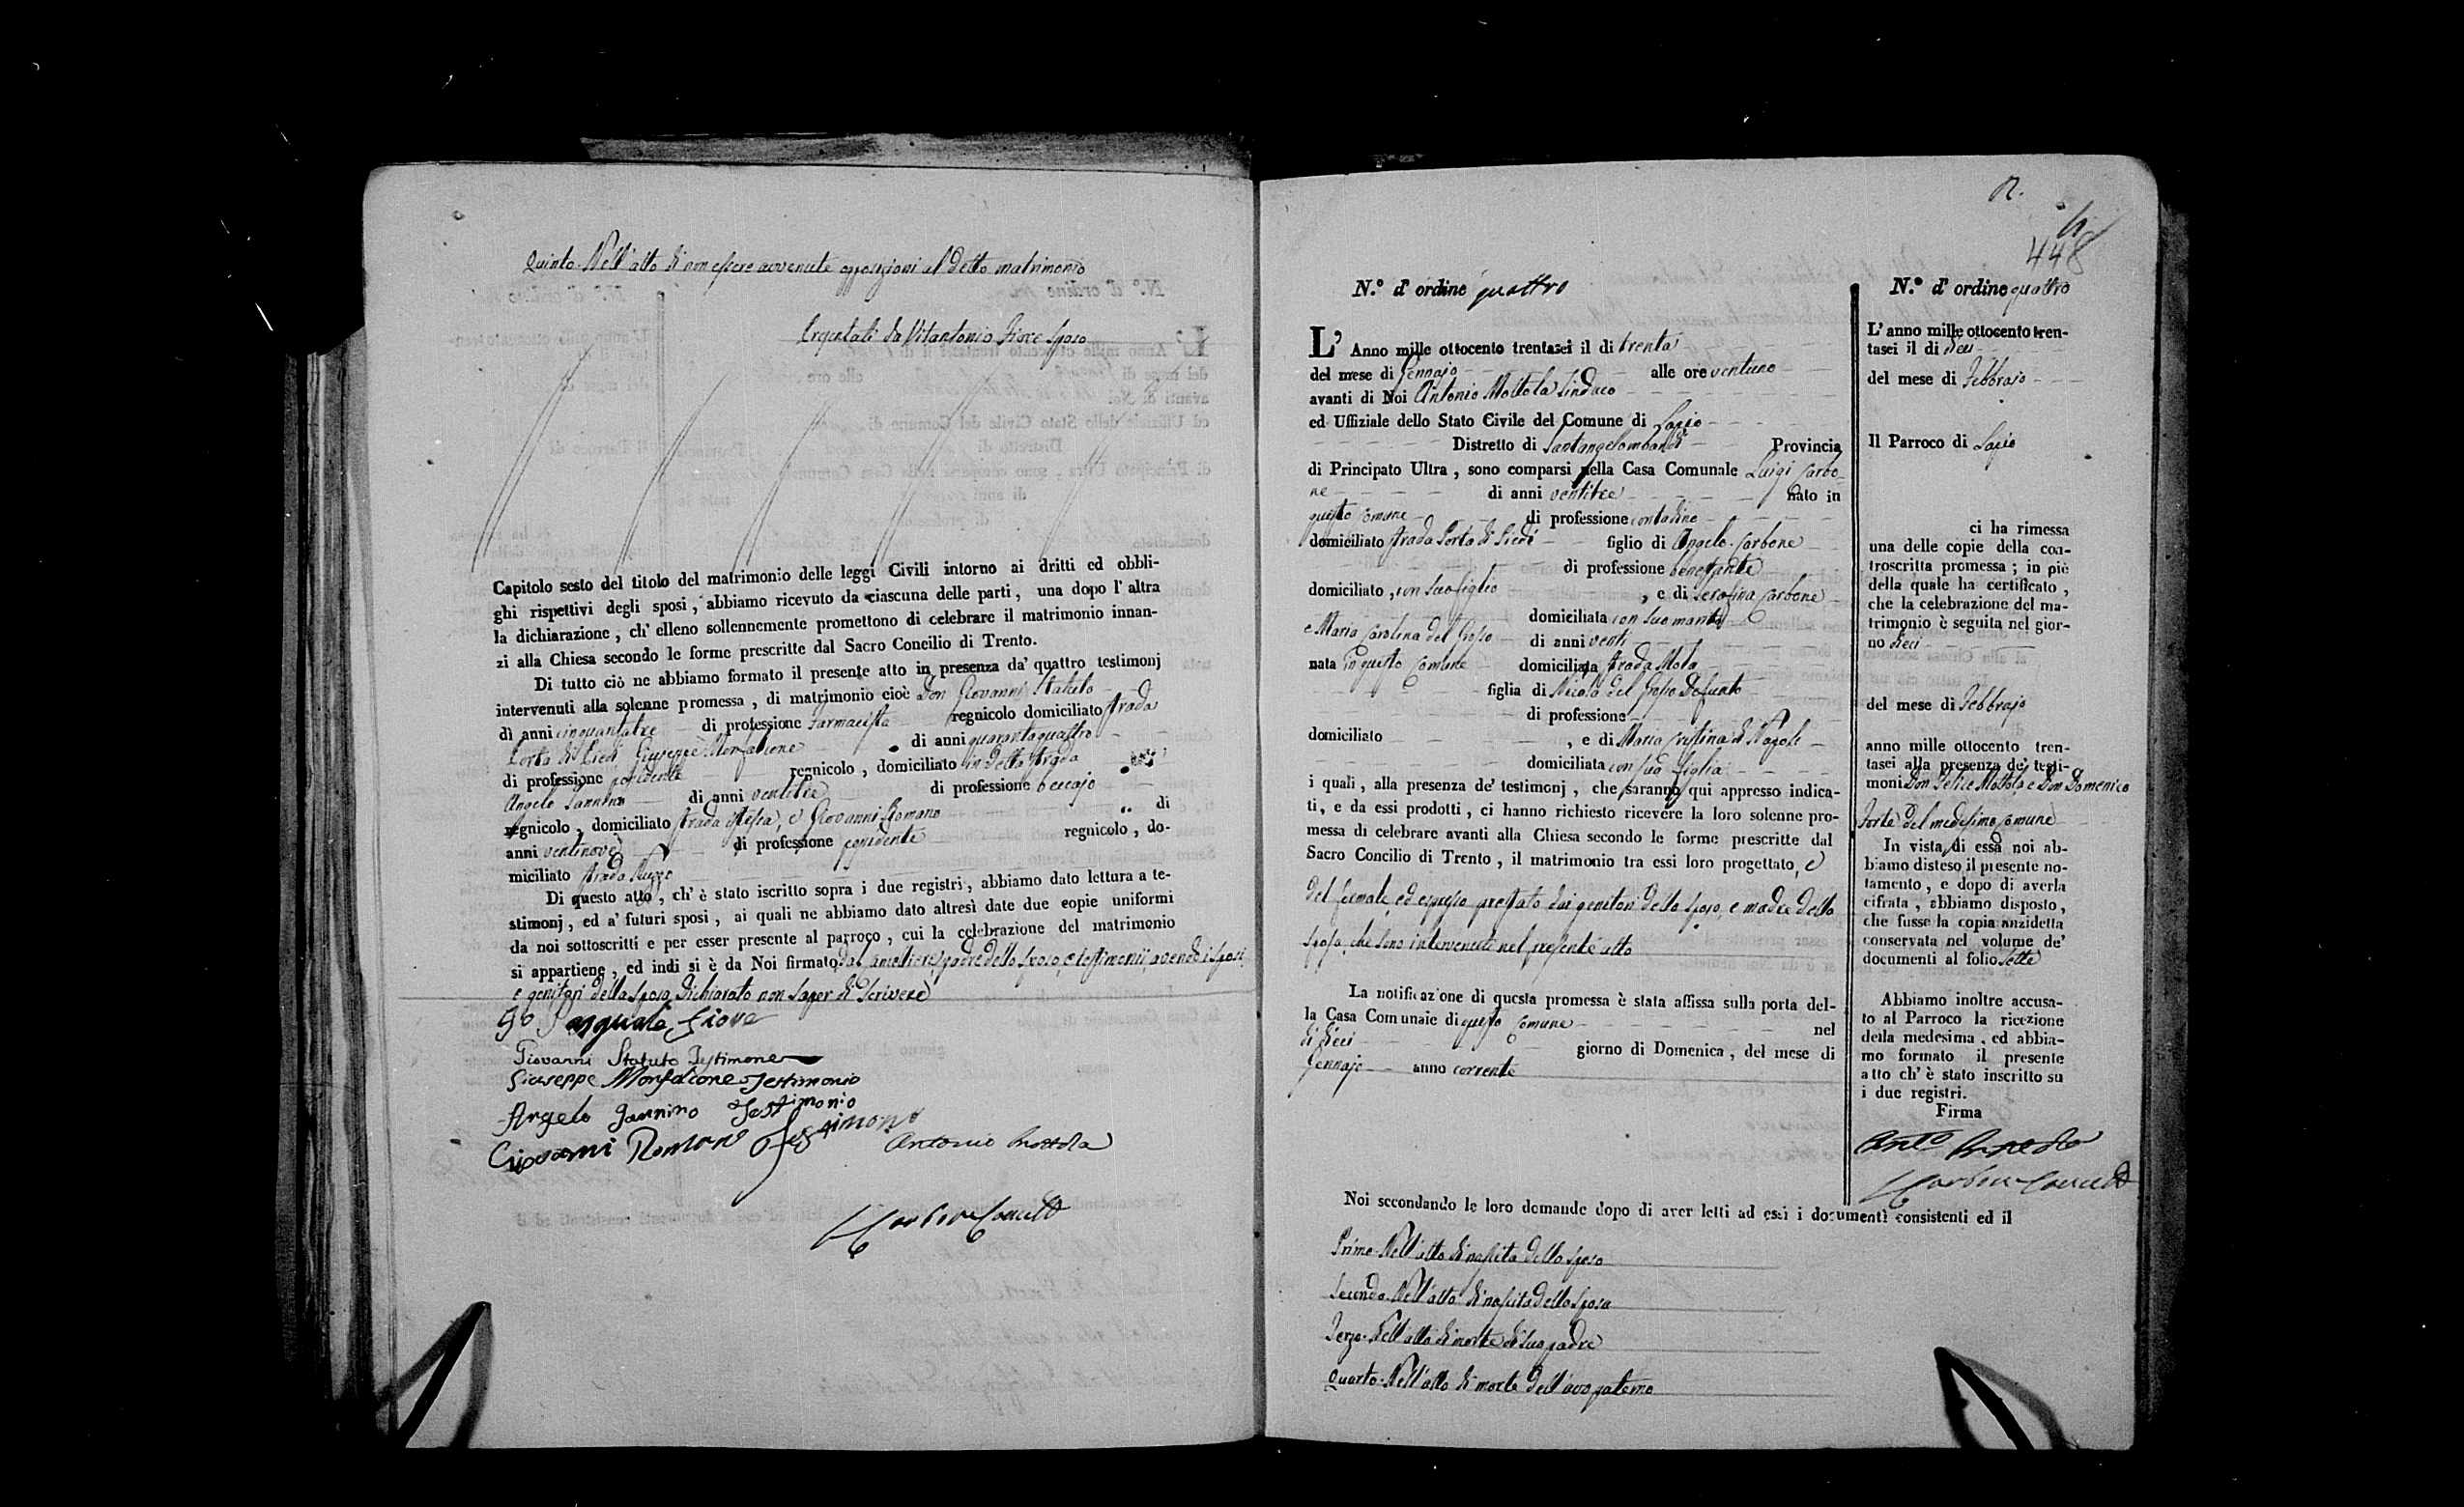 Quinto. Nell'atto di non essere avvenute opposizioni al detto matrimonio
da Vitantonio Fiore Sposo
Capitolo sesto del titolo del matrimonio delle leggi Civili intorno ai dritti ed obbli-
ghi rispettivi degli sposi, abbiamo ricevuto da ciascuna delle parti, una dopo l'altra
la dichiarazione, ch'elleno sollennemente promettono di celebrare il matrimonio innan-
zi alla Chiesa secondo le forme prescritte dal Sacro Concilio di Trento.
Di tutto ciò ne abbiamo formato il presente atto in presenza da' quattro testimonj
intervenuti alla solenne promessa, di matrimonio cioè Don Giovanni Statuto
di anni cinquantatre di professione Farmacista regnicolo domiciliato strada
Porta di Piedi Giuseppe Monfalcone di anni quarantaquattro
di professione possidente regnicolo, domiciliato in detta strada
Angelo Iannino di anni ventitre di professione beccajo
regnicolo, domiciliato strada istessa, e Giovanni Romano di
anni ventinove di professione possidente regnicolo, do-
miciliato strada
Di questo atto, ch'è stato iscritto sopra i due registri, abbiamo dato lettura a te-
stimonj, ed a' futuri sposi, ai quali ne abbiamo dato altresì date due copie uniformi
da noi sottoscritti e per esser presente al parroco, cui la celebrazione del matrimonio
si appartiene, ed indi si è da Noi firmato, dal Cancelliere, padre dello sposo, e testimonii, avendo i sposi
e genitori della sposa dichiarato non saper di scrivere
Pasquale Fiore
Giovanni Statuto Testimone
Giuseppe Monfalcone Testimonio
Angelo Jannino Testimonio
Giovanni Romano Testimone
Antonio Mottola
N.º d'ordine quattro
L'Anno mille ottocento trentasei il di trenta
del mese di Gennajo alle ore ventuno
avanti di Noi Antonio Mottola Sindaco
ed Uffiziale dello Stato Civile del Comune di Lapio
Distretto di Santangelombardi Provincia
di Principato Ultra, sono comparsi nella Casa Comunale Luigi Carbo-
ne di anni ventitre nato in
questo Comune di professione contadino
domiciliato strada Porta di Piedi figlio di Angelo Carbone
di professione benestante
domiciliato, con suo figlio, e di Serafina Carbone
domiciliata con suo marito
e Maria Carolina del Grosso di anni venti
nata in questo Comune domiciliata strada Mola
figlia di Nicola del Grosso Defunto
di professione
domiciliato, e di Maria Cristina di Napoli
domiciliata con sua figlia
i quali, alla presenza de' testimonj, che saranno qui appresso indica-
ti, e da essi prodotti, ci hanno richiesto ricevere la loro solenne pro-
messa di celebrare avanti alla Chiesa secondo le forme prescritte dal
Sacro Concilio di Trento, il matrimonio tra essi loro progettato, e
del formale, ed espresso prestato dai genitori dello sposo, e madre della
sposa, che sono intervenuti nel presente atto
La notificazione di questa promessa è stata affissa sulla porta del-
la Casa Comunale di questo Comune nel
di dieci giorno di Domenica, del mese di
Gennajo anno corrente
Noi secondando le loro domande dopo di aver letti ad essi i documenti consistenti ed il
Primo. Nell'atto di nascita dello sposo
Secondo. Nell'atto di nascita della sposa
Terzo. Nell'atto di morte di suo padre
Quarto. Nell'atto di morte dell'avo paterno
448
N.º d'ordine quattro
L'anno mille ottocento tren-
tasei il di dieci
del mese di Febbrajo
Il Parroco di Lapio
ci ha rimessa
una delle copie della con-
troscritta promessa; in piè
della quale ha certificato,
che la celebrazione del ma-
trimonio è seguita nel gior-
no dieci
del mese di Febbrajo
anno mille ottocento tren-
tasei alla presenza de' testi-
moni Don Felice Mottola e Don Domenico
Forte del medesimo Comune
In vista di essa noi ab-
biamo disteso il presente no-
tamento, e dopo di averla
cifrata, abbiamo disposto,
che fusse la copia anzidetta
conservata nel volume de'
documenti al folio sette
Abbiamo inoltre accusa-
to al Parroco la ricezione
della medesima, ed abbia-
mo formato il presente
atto ch'è stato inscritto su
i due registri.
Firma